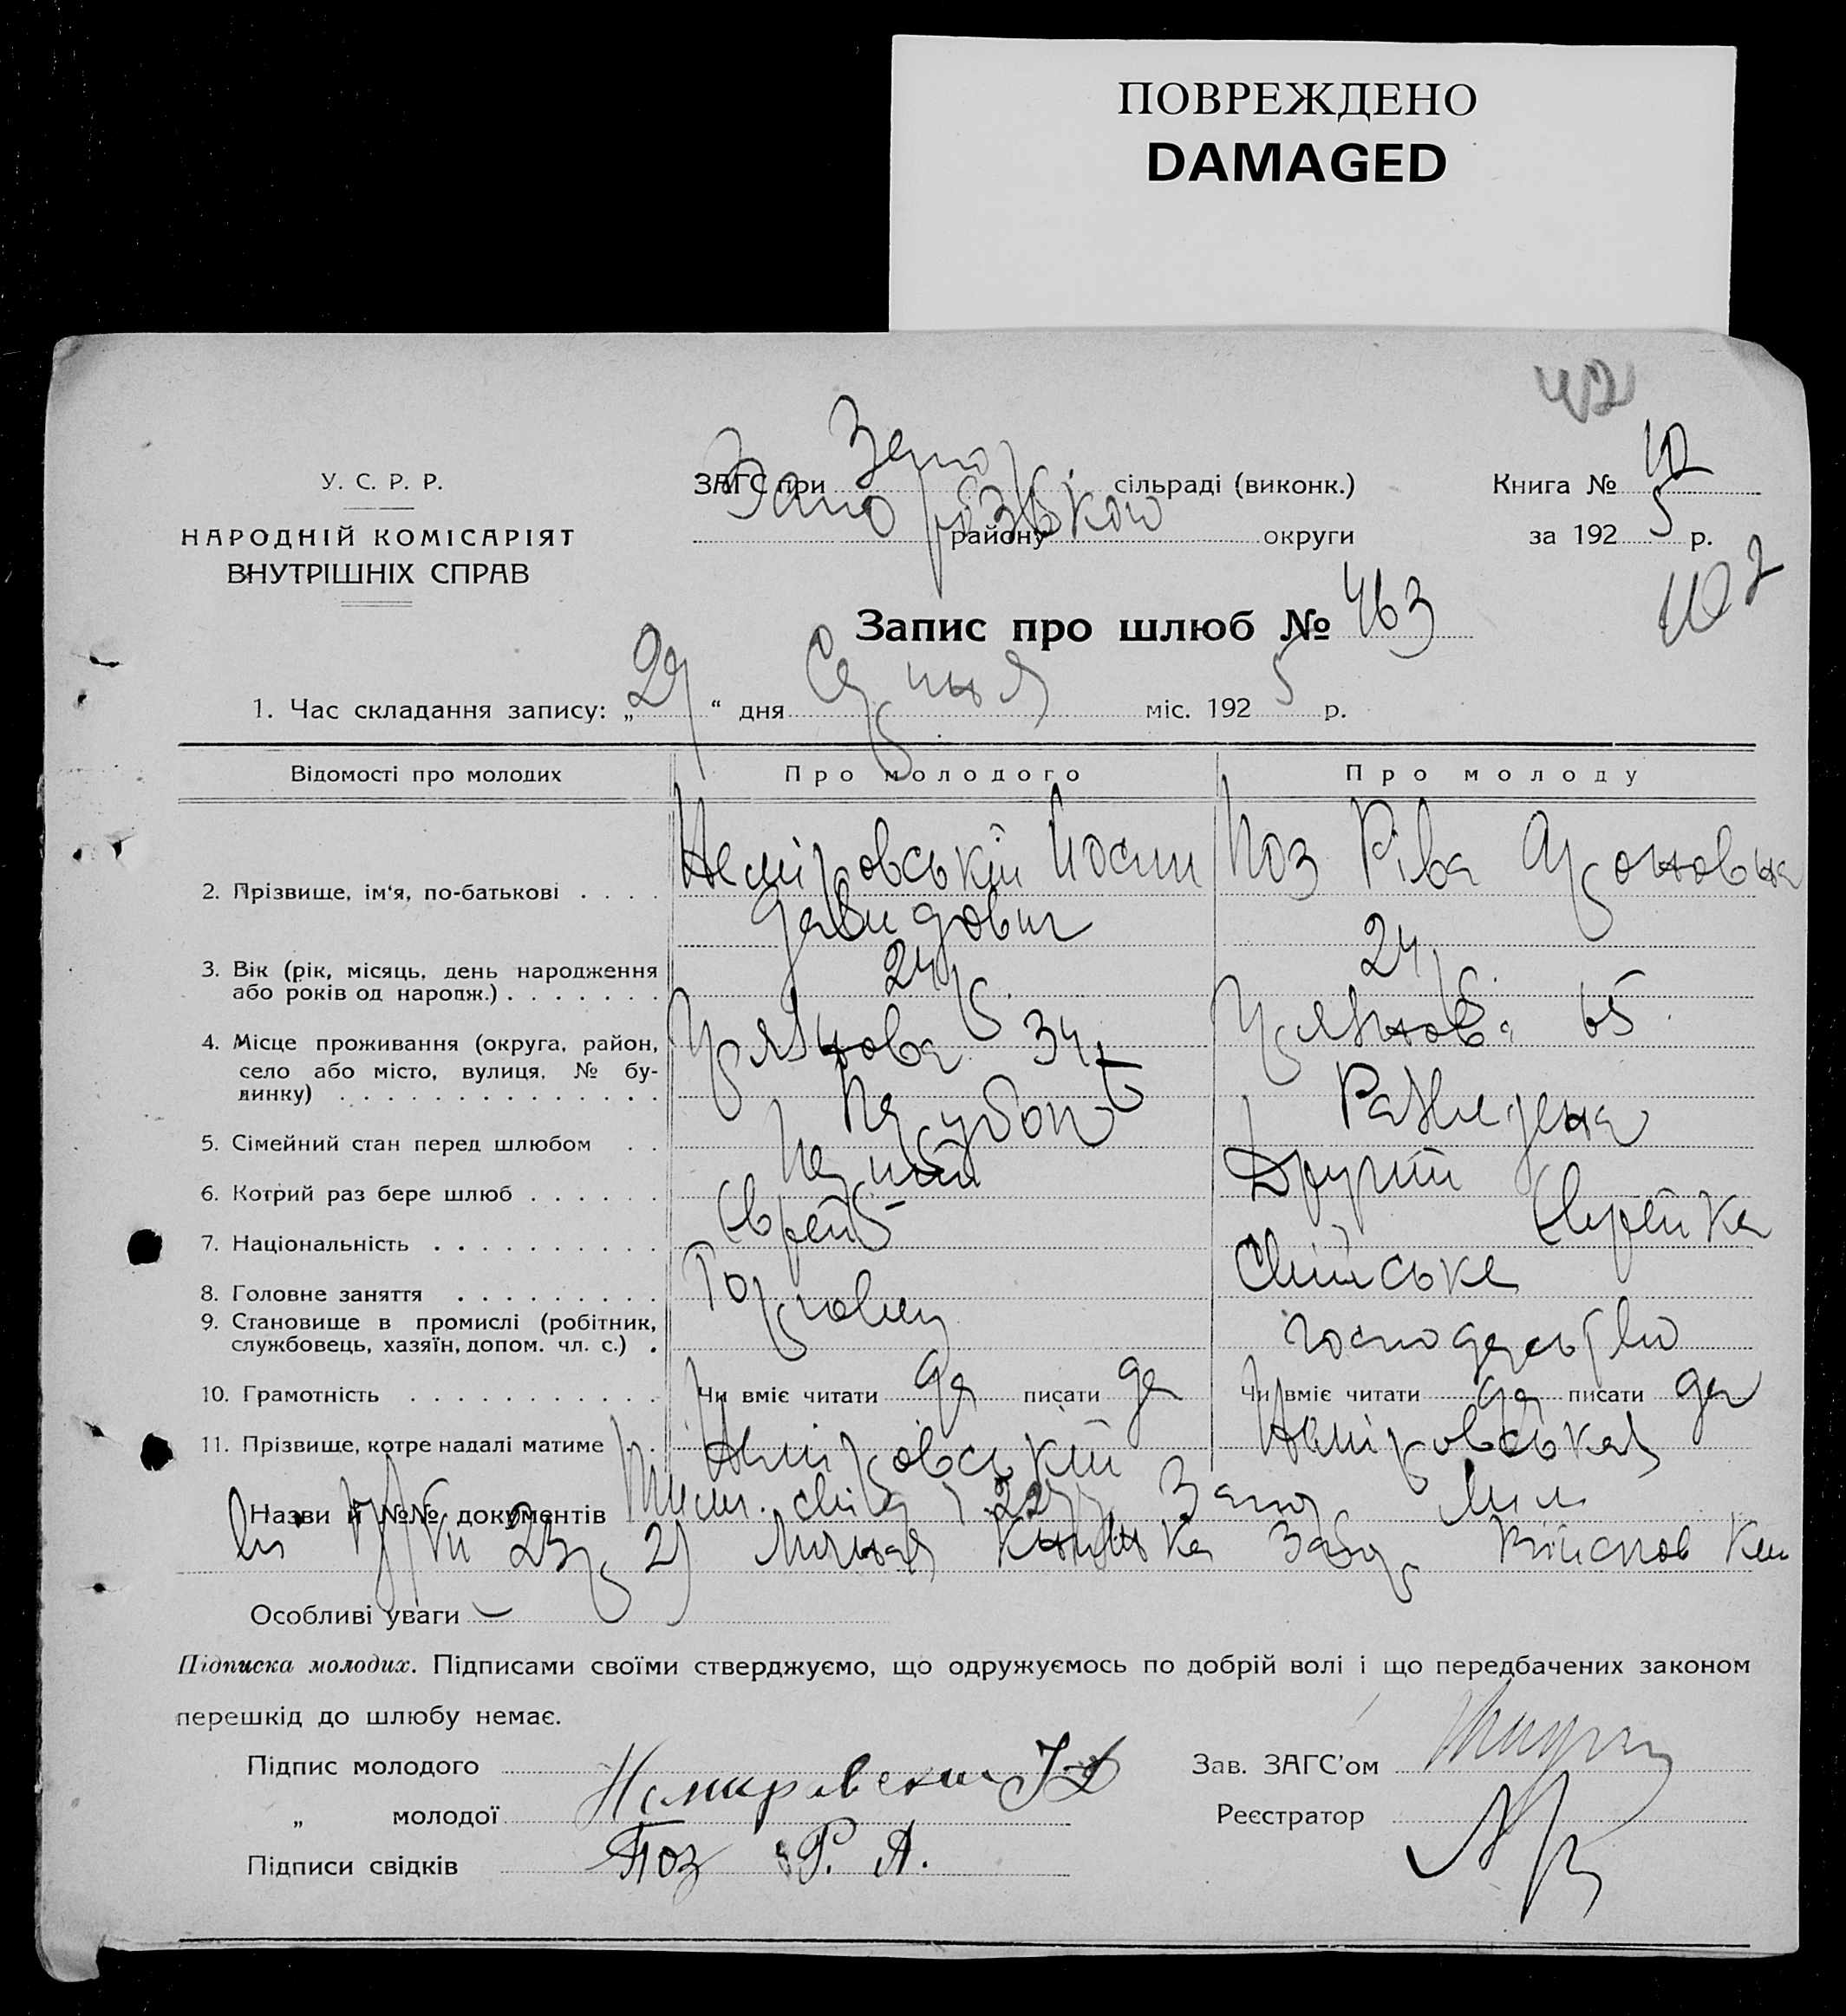 ПОВРЕЖДЕНО
DAMAGED
42
У. С. Р. Р.
НАРОДНІЙ КОМІСАРІЯТ
ВНУТРІШНІХ СПРАВ
ЗАГС при сільраді (виконк.)
Запорізького
району округи
Книга № 42
за 1925 р.
Запис про шлюб № 463
1. Час складання запису: „ “ дня Серпня міс. 1925 р.
Відомості про молодих Про молодого Про молоду
2. Прізвище, ім‘я, по-батькові Неміровській Йосип Поз Ріва Ароновна
Давидович
3. Вік (рік, місяць, день народження
або років од народж.) 24 р. 24 р.
4. Місце проживання (округа, район,
село або місто, вулиця, № будинку) 34 65
5. Сімейний стан перед шлюбом Парубок
6. Котрий раз бере шлюб Перший Другий
7. Національність Єврей Єврейка
8. Головне заняття Торговец Сімйське
9. Становище в промислі (робітник,
службовець, хазяїн, допом. чл. с.) господарство
10. Грамотність Чи вміє читати да писати да Чи вміє читати да писати да
11. Прізвище, котре надалі матиме Неміровській Неміровська
Назви й №№ документів
Личная Книжка
Особливі уваги —
Підписка молодих. Підписами своїми стверджуємо, що одружуємось по добрій волі і що передбачених законом
перешкід до шлюбу немає.
Підпис молодого Немировский Зав. ЗАГС’ом
„ молодої Поз Р. А. Реєстратор
Підписи свідків